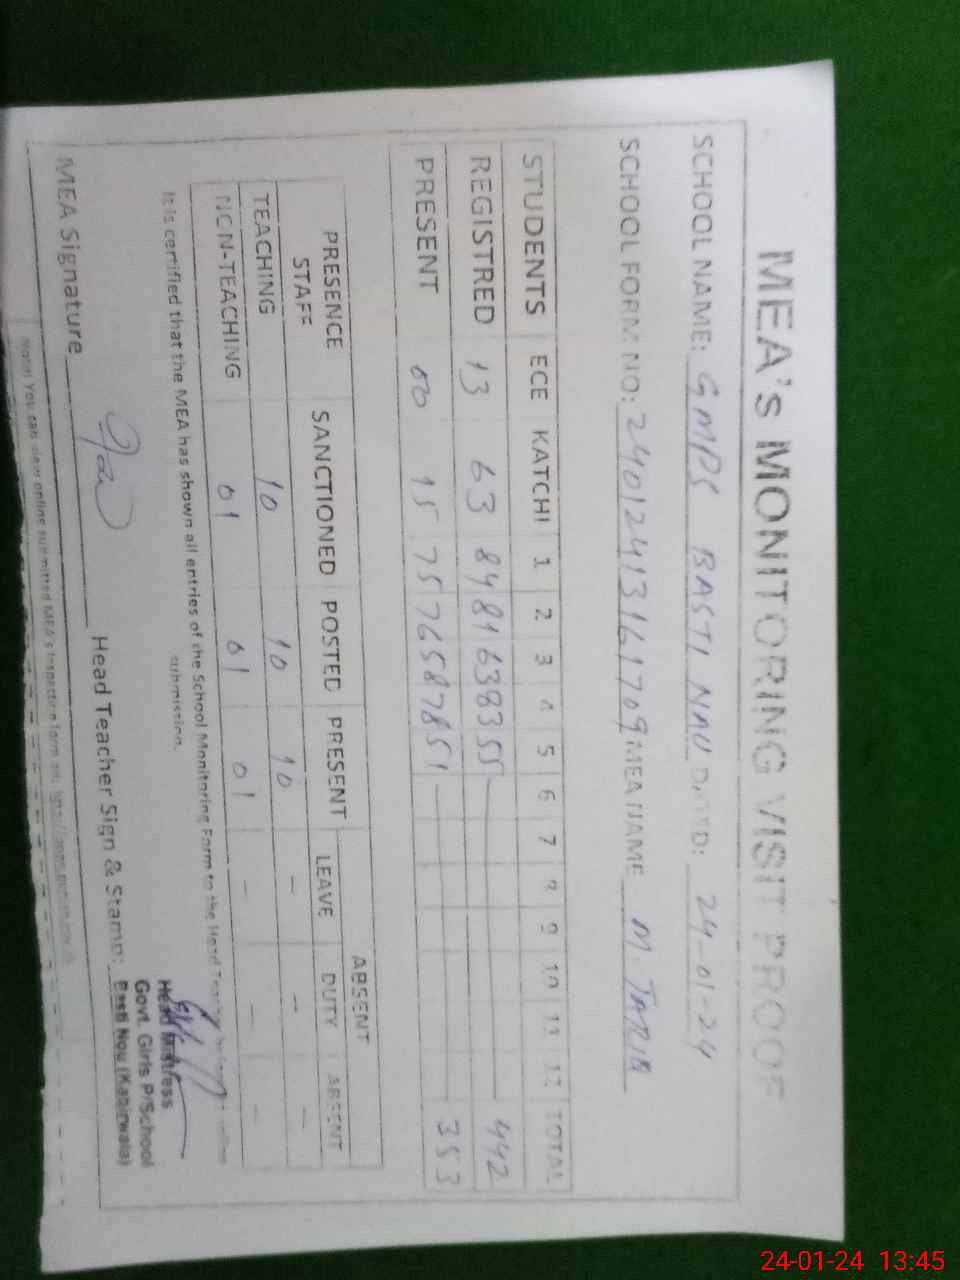 MEA's MONITORING VISIT PROOF
SCHOOL NAME: GMPS BASTI NAU DATED: 24-01-24
SCHOOL FORM NO: MEA NAME M. TARIQ
STUDENTS ECE KATCHI 1 2 3 4 5 6 7 8 9 10 11 12 TOTAL
REGISTRED 13 63 84 81 63 83 55 442
PRESENT 00 15 75 76 58 78 51 353
PRESENCE STAFF SANCTIONED POSTED PRESENT ABSENT
LEAVE DUTY ABSENT
TEACHING 10 10 10 - - -
NON-TEACHING 01 01 01 - - -
It is certified that the MEA has shown all entries of the School Monitoring Form to the Head online
submission.
MEA Signature Head Teacher Sign & Stamp:
Head Mistress
Govt. Girls P/School
Basti Nou (Kabirwala)
Note: You can view online submitted MEA's Inspection form on:
24-01-24 13:45